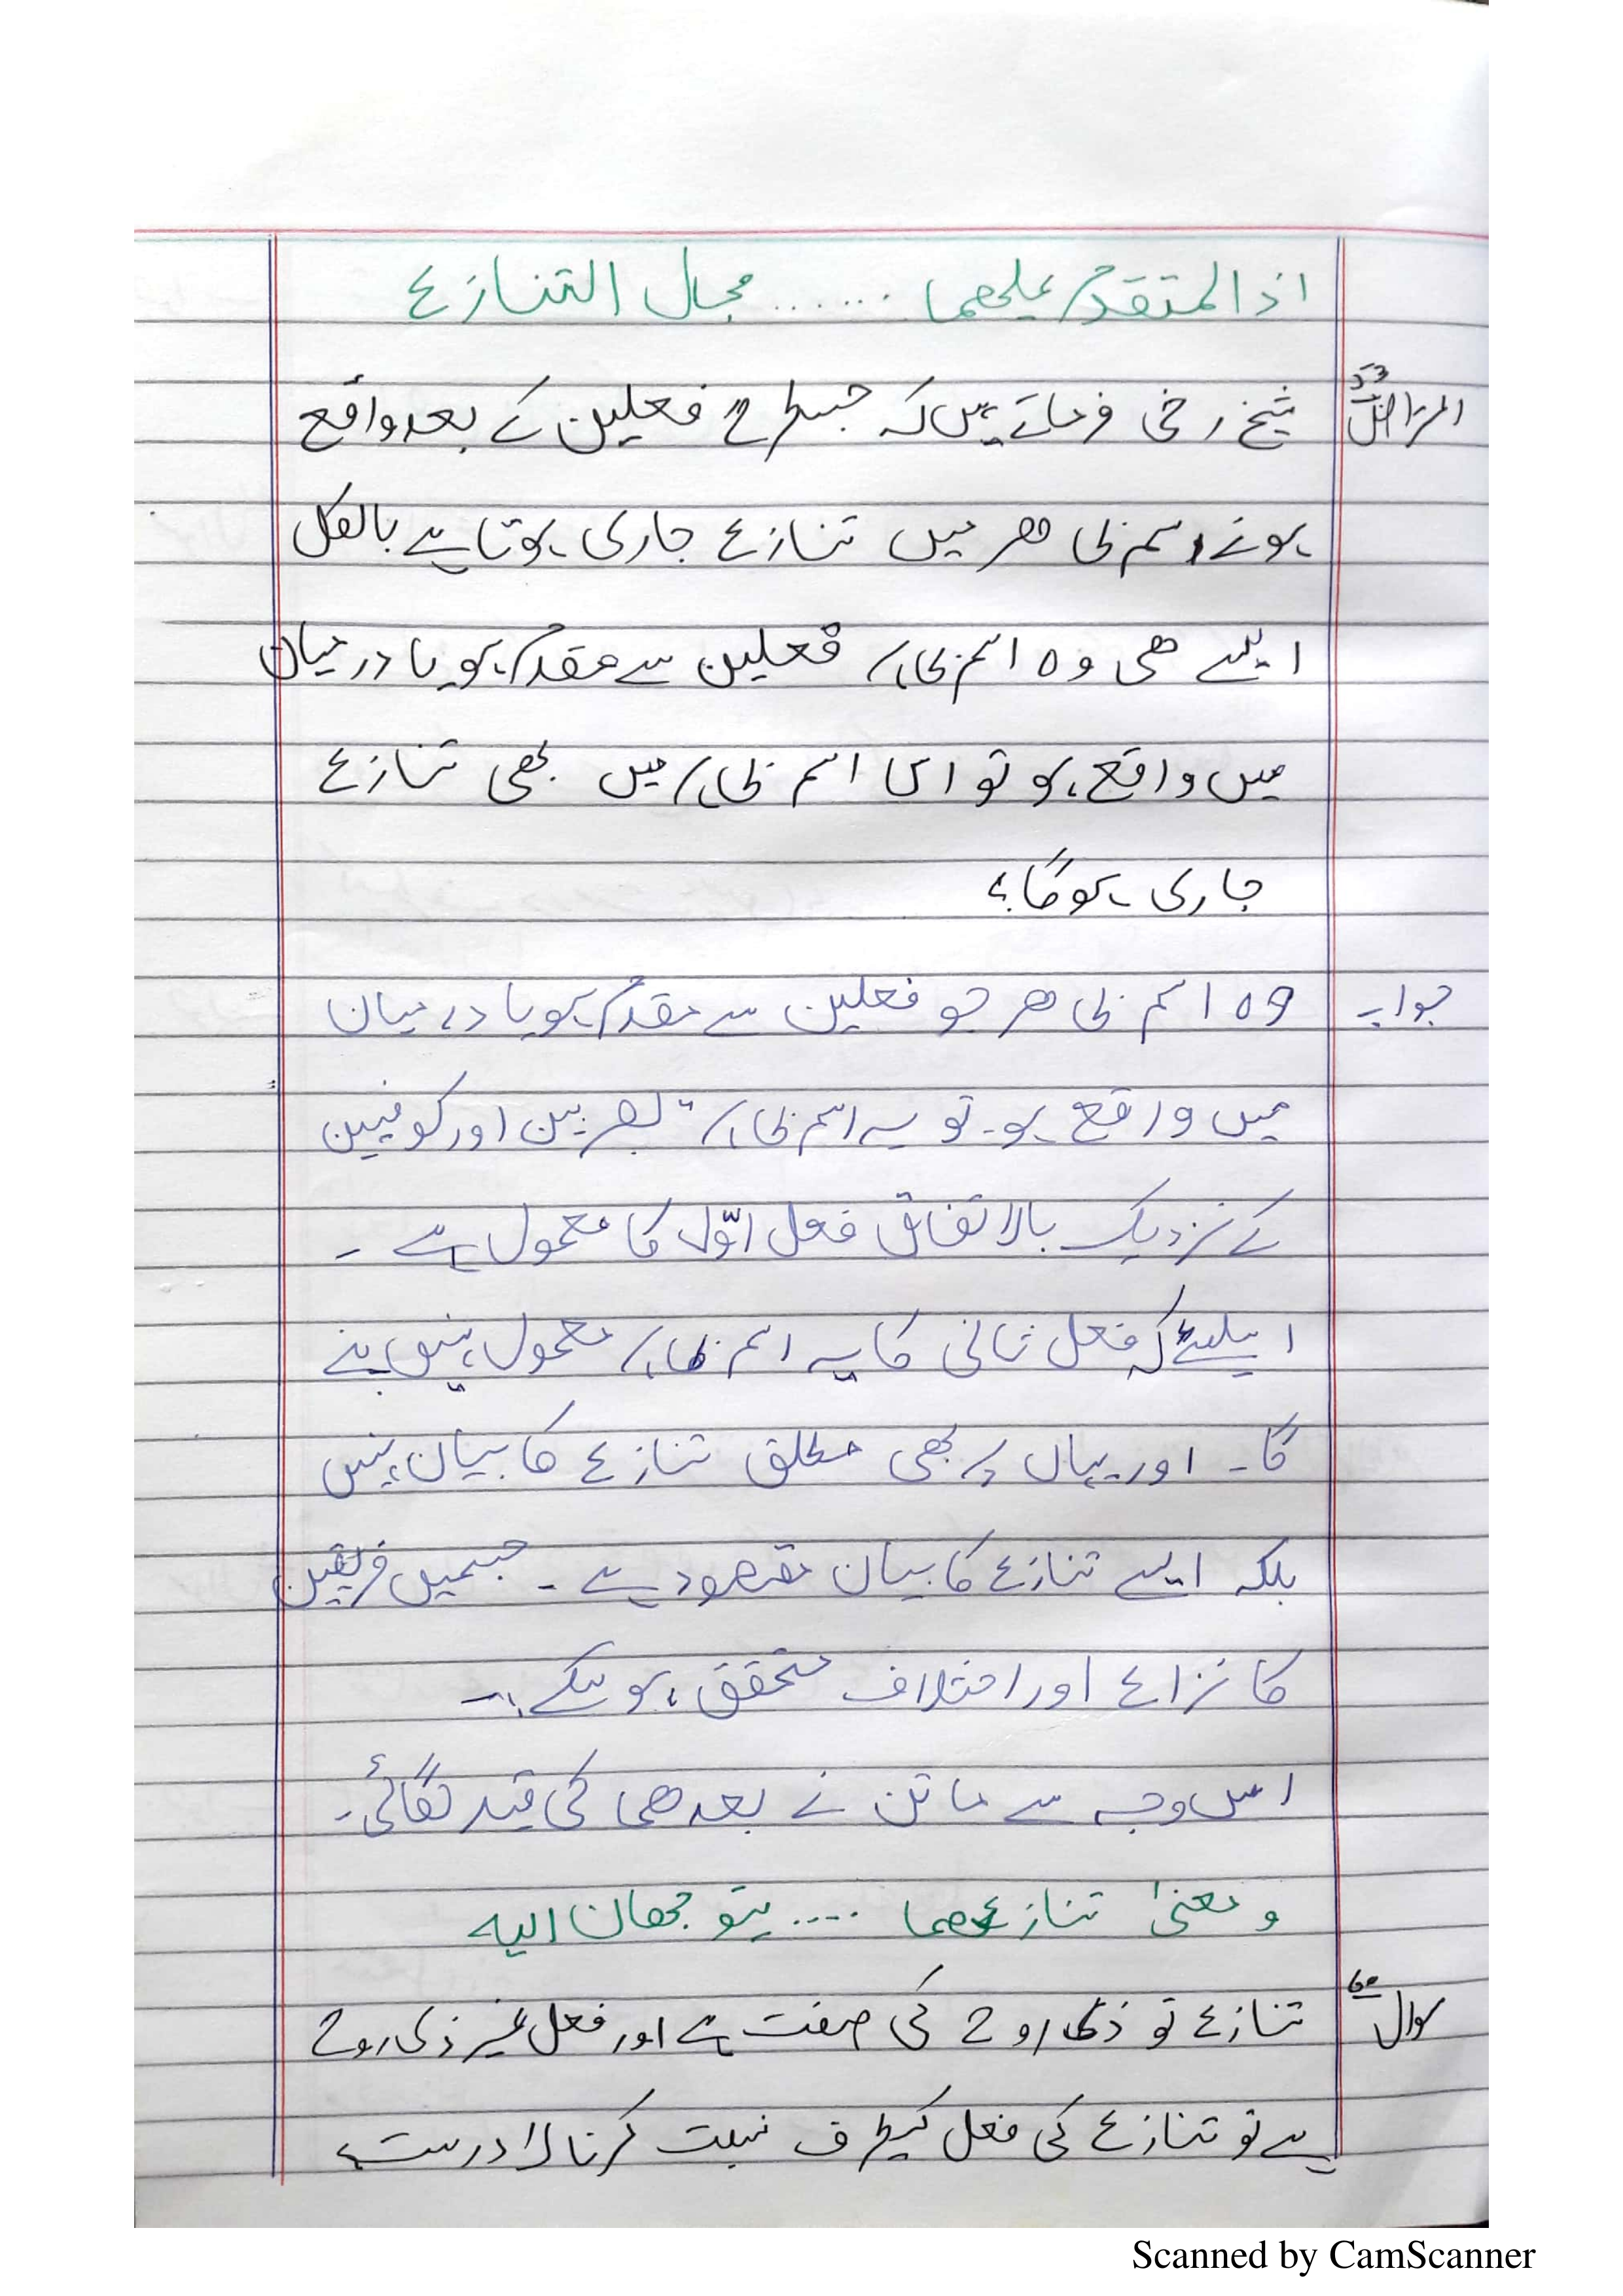 اذ المتقدم علیھما ...... مجال التنازع
اعتراض شیخ رضی فرماتے ہیں کہ جسطرح فعلین کے بعد واقع
ہونے اسم ظاھر میں تنازع جاری ہوتا ہے بالکل
ایسے ھی وہ اسم ظاہر فعلین سے مقدم ہو یا درمیان
میں واقع ہو تو اس اسم ظاہر میں بھی تنازع
جاری ہوگا؟
جواب وہ اسم ظاھر جو فعلین سے مقدم ہو یا درمیان
میں واقع ہو۔ تو یہ اسم ظاہر بصریین اور کوفیین
کے نزدیک بالاتفاق فعل اوّل کا معمول ہے۔
اسلیئے کہ فعل ثانی کا یہ اسم ظاہر معمول نہیں بنے
گا۔ اور یہاں پر بھی مطلق تنازع کا بیان نہیں
بلکہ ایسے تنازع کا بیان مقصود ہے۔ جسمیں فریقین
کا نزاع اور اختلاف متحقق ہو سکے۔
اس وجہ سے ماتن نے بعدھما کی قید لگائی۔
و معنیٰ تنازعھما .... یتوجھان الیہ
سوال تنازع تو ذی روح کی صفت ہے اور فعل غیر ذی روح
ہے تو تنازع کی فعل کیطرف نسبت کرنا درست
Scanned by CamScanner